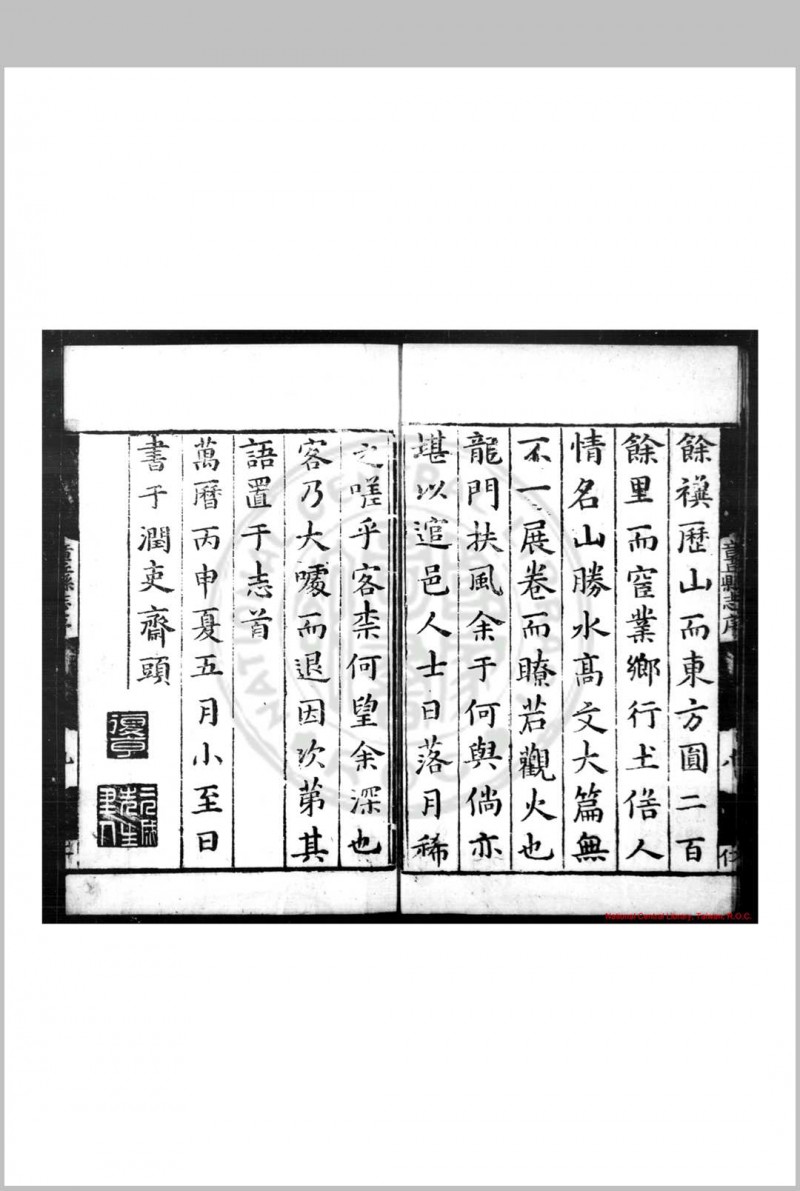 餘禩歷山而東方圓二百
餘里而窽業鄉行土俗人
情名山勝水高文大篇無
不一展卷而瞭若觀火也
龍門扶風余于何與倘亦
堪以逭邑人士日落月稀
之嗟乎客柰何望余深也
客乃大噱而退因次第其
語置于志首
萬曆丙申夏五月小至日
書于潤吏齋頭
復亨
章丘縣志序
National Central Library, Taiwan, R.O.C.